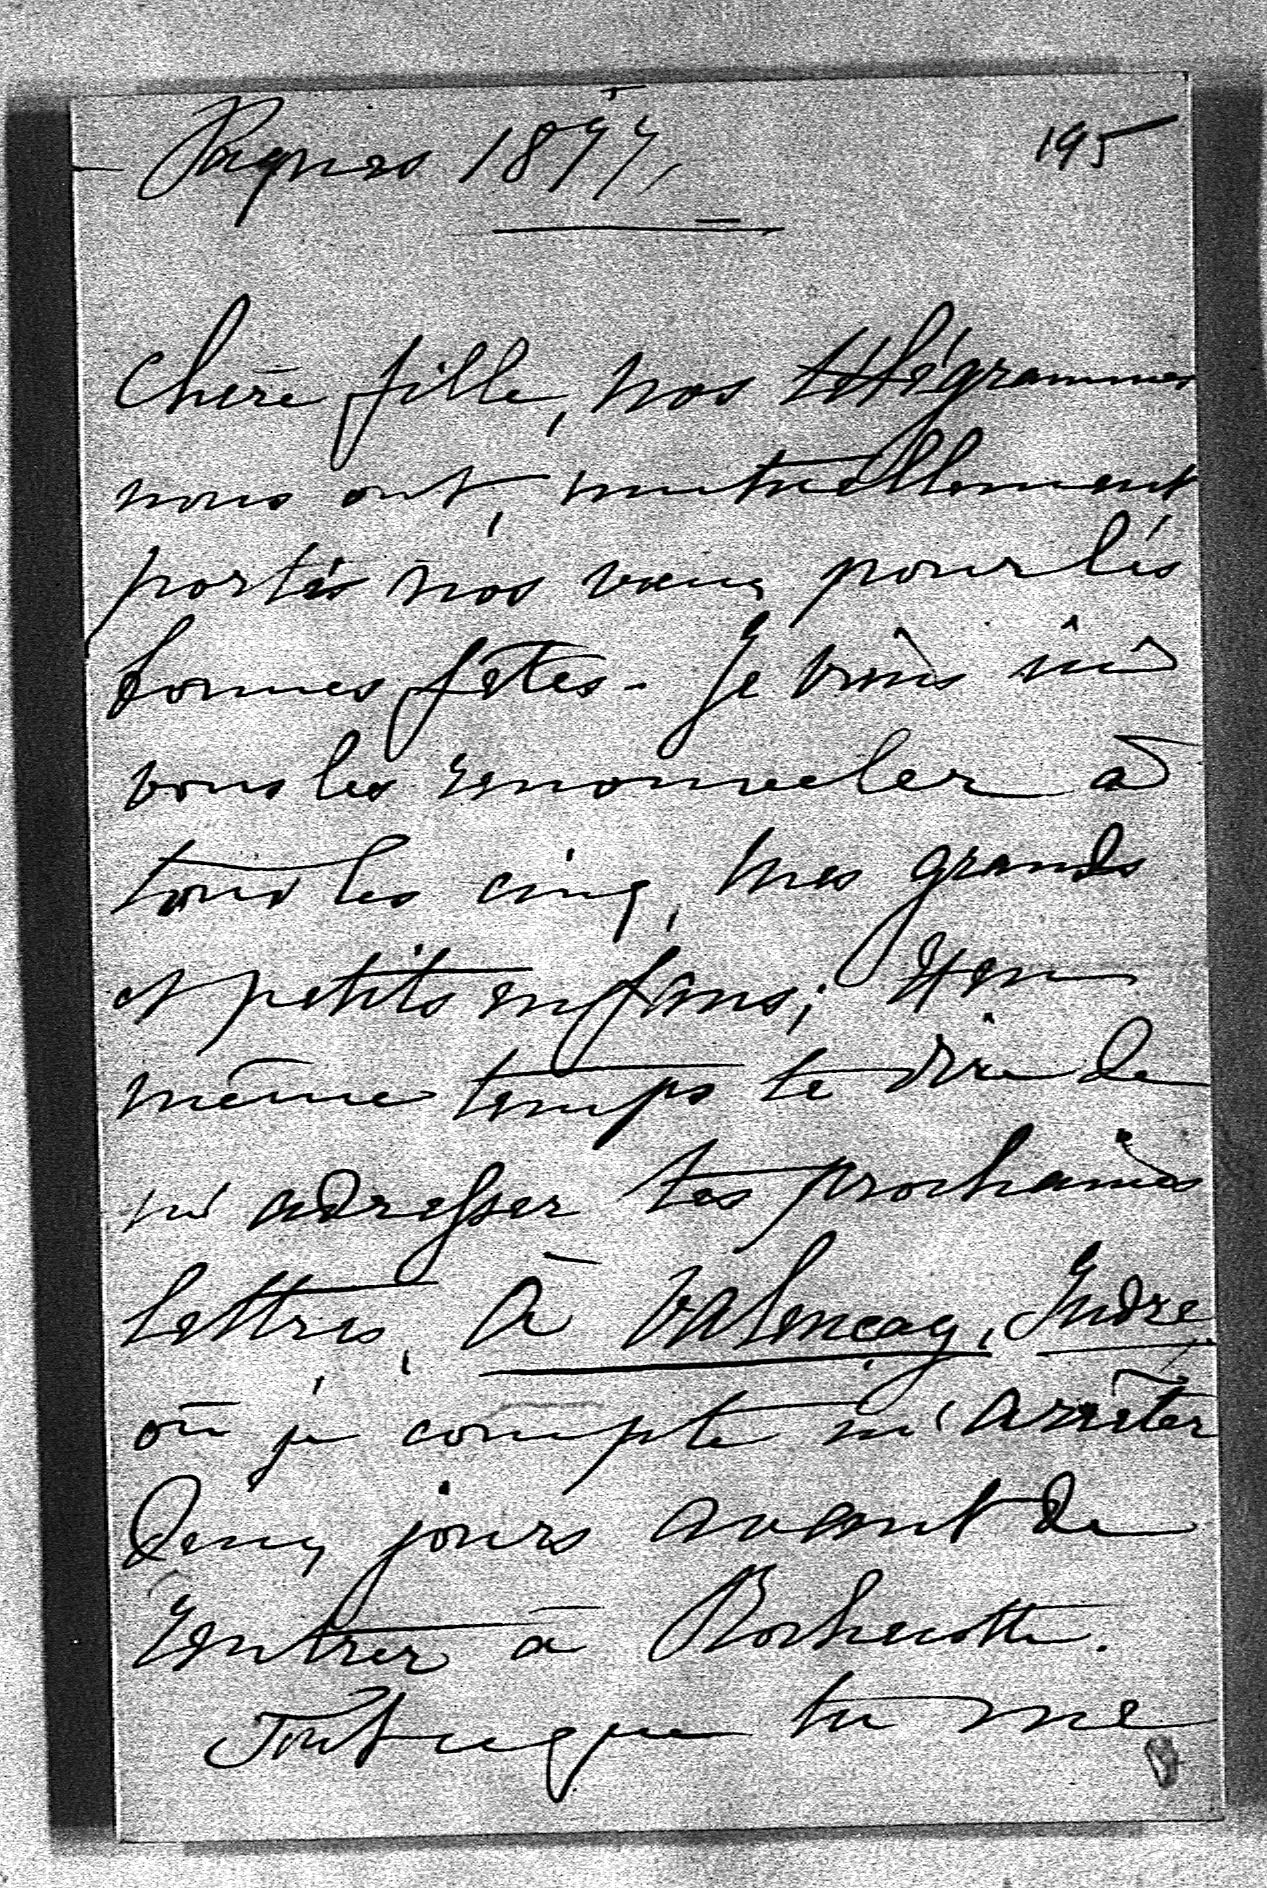 Pâques 1877, 195
Chère fille, nos télégrammes
nous ont, mutuellement
portés nos vœux pour les
bonnes fêtes. Je viens ici
vous les renouveler à
tous les cinq, mes grands
et petits enfans; et en
même temps te dire de
m'adresser tes prochaines
lettres, à Valençay, Indre,
où je compte m'arrêter
deux jours avant de
rentrer à Rochecotte.
Tout ce que tu me